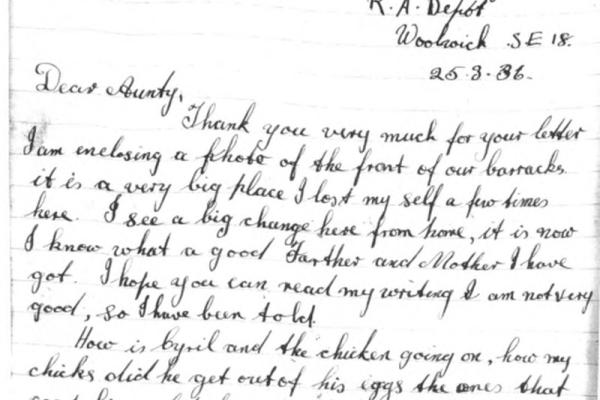 R. A. Depot
Woolwich .SE 18.
25.3.36.
Dear Aunty,
Thank you very much for your letter
I am enclosing a photo of the front of our barracks.
it is a very big place I lost my self a few times
here. I see a big change here from home, it is now
I know what a good Farther and Mother I have
got. I hope you can read my writing I am not very
good, so I have been told.
How is Cyril and the chicken going on, how my
chicks did he get out of his eggs the ones that